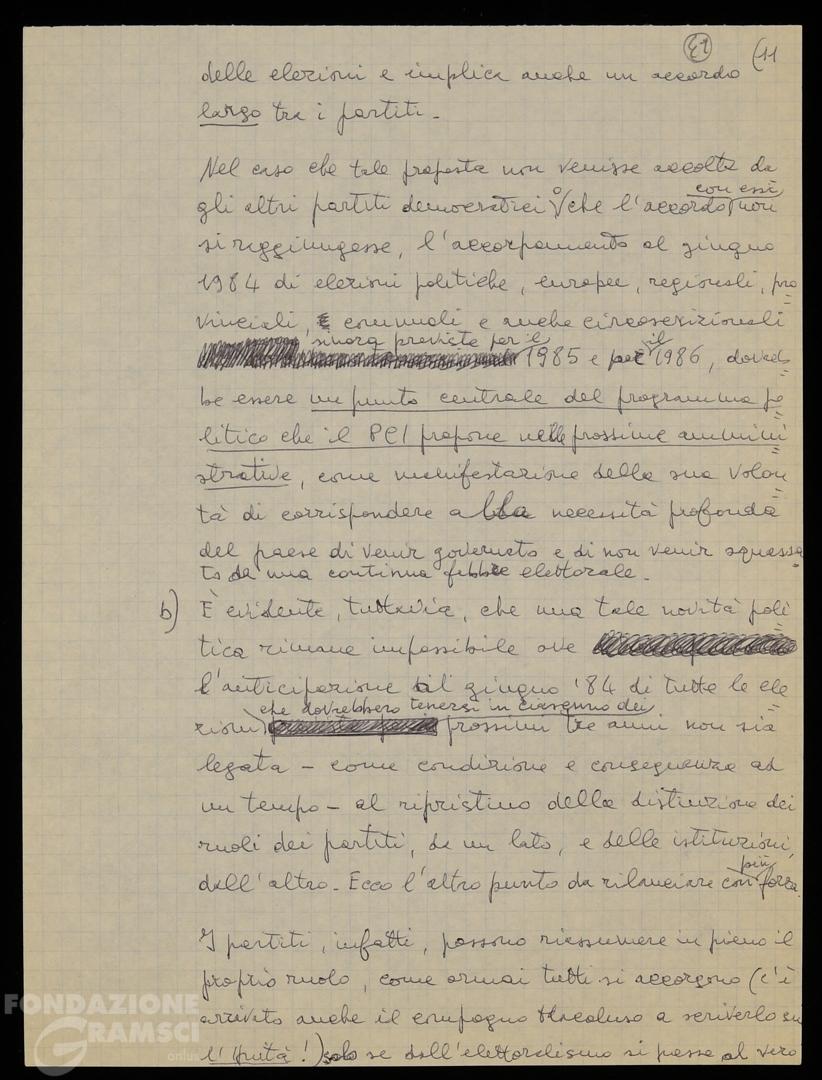 41 (11
delle elezioni e implica anche un accordo
largo tra i partiti.
Nel caso che tale proposta non venisse accolta da
gli altri partiti democratici o che l'accordo con essi non
si raggiungesse, l'accorpamento al giugno
1984 di elezioni politiche, europee, regionali, pro
vinciali, comunali e anche circoscrizionali
sinora previste per il 1985 e per il 1986, dovreb
be essere un punto centrale del programma po
litico che il PCI propone nelle prossime ammini
strative, come manifestazione della sua volon
tà di corrispondere alla necessità profonda
del paese di venir governato e di non venir squassa
to da una continua febbre elettorale.
b) È evidente, tuttavia, che una tale novità poli
tica rimane impossibile ove
l'anticipazione al giugno '84 di tutte le ele
zioni che dovrebbero tenersi in ciascuno dei prossimi tre anni non sia
legata – come condizione e conseguenza ad
un tempo – al ripristino della distinzione dei
ruoli dei partiti, da un lato, e delle istituzioni,
dall'altro. Ecco l'altro punto da rilanciare con più forza.
I partiti, infatti, possono riassumere in pieno il
proprio ruolo, come ormai tutti si accorgono (c'è
arrivato anche il compagno Macaluso a scriverlo su
l'Unità!) solo se dall'elettoralismo si passa al vero
FONDAZIONE
GRAMSCI
onlus